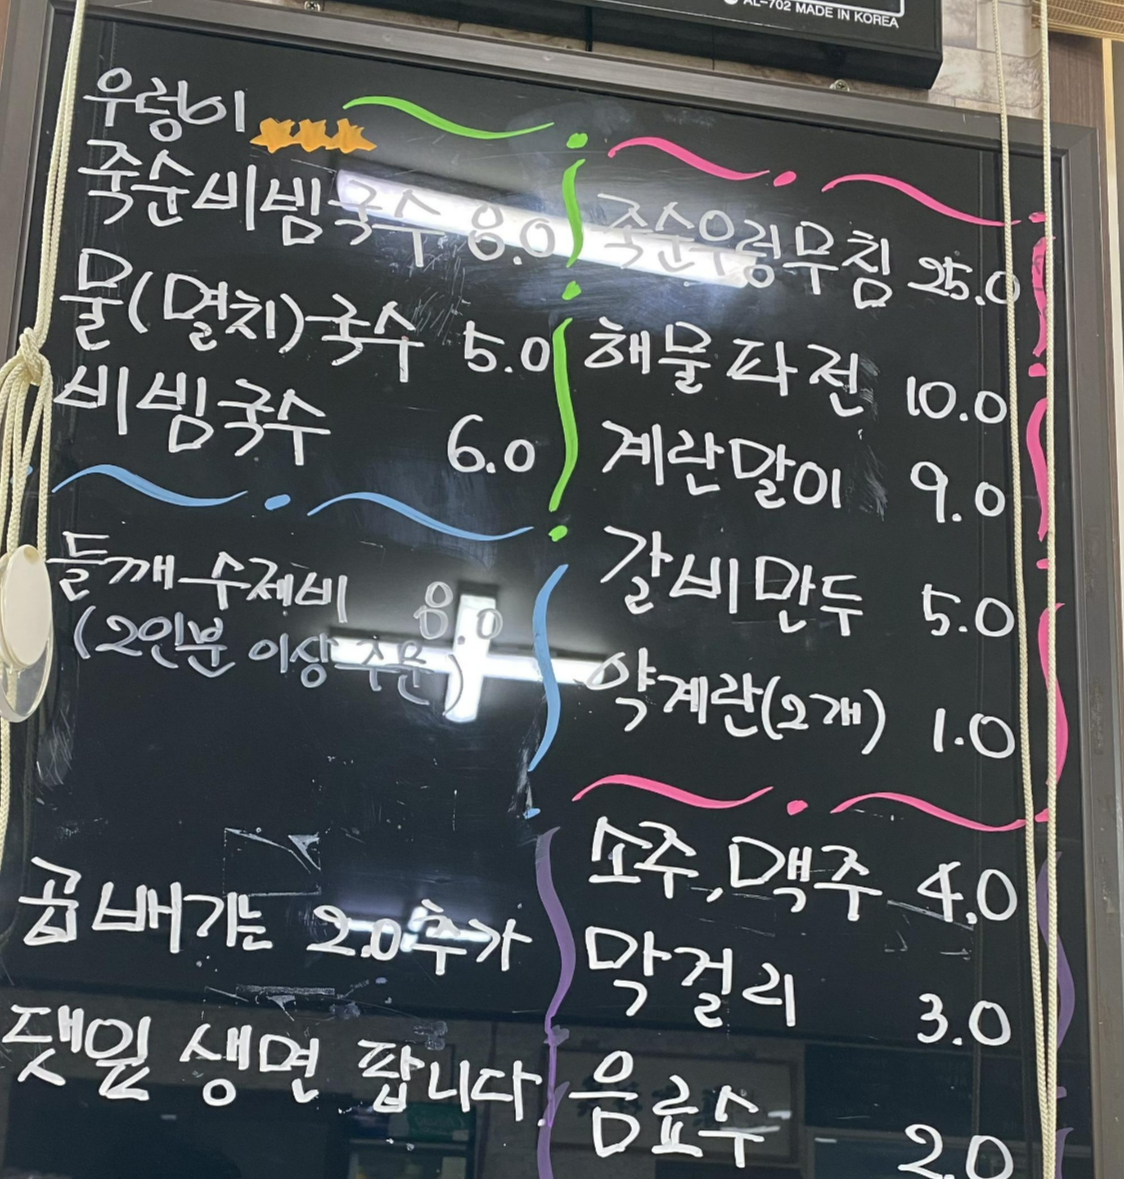 AL-702 MADE IN KOREA
우렁이
죽순비빔국수 8.0
물(멸치)국수 5.0
비빔국수 6.0
들깨수제비 8.0
(2인분 이상 주문)
곱배기는 2.0추가
댓잎 생면 팝니다.
죽순우렁무침 25.0
해물파전 10.0
계란말이 9.0
갈비만두 5.0
약계란(2개) 1.0
소주,맥주 4.0
막걸리 3.0
음료수 2.0